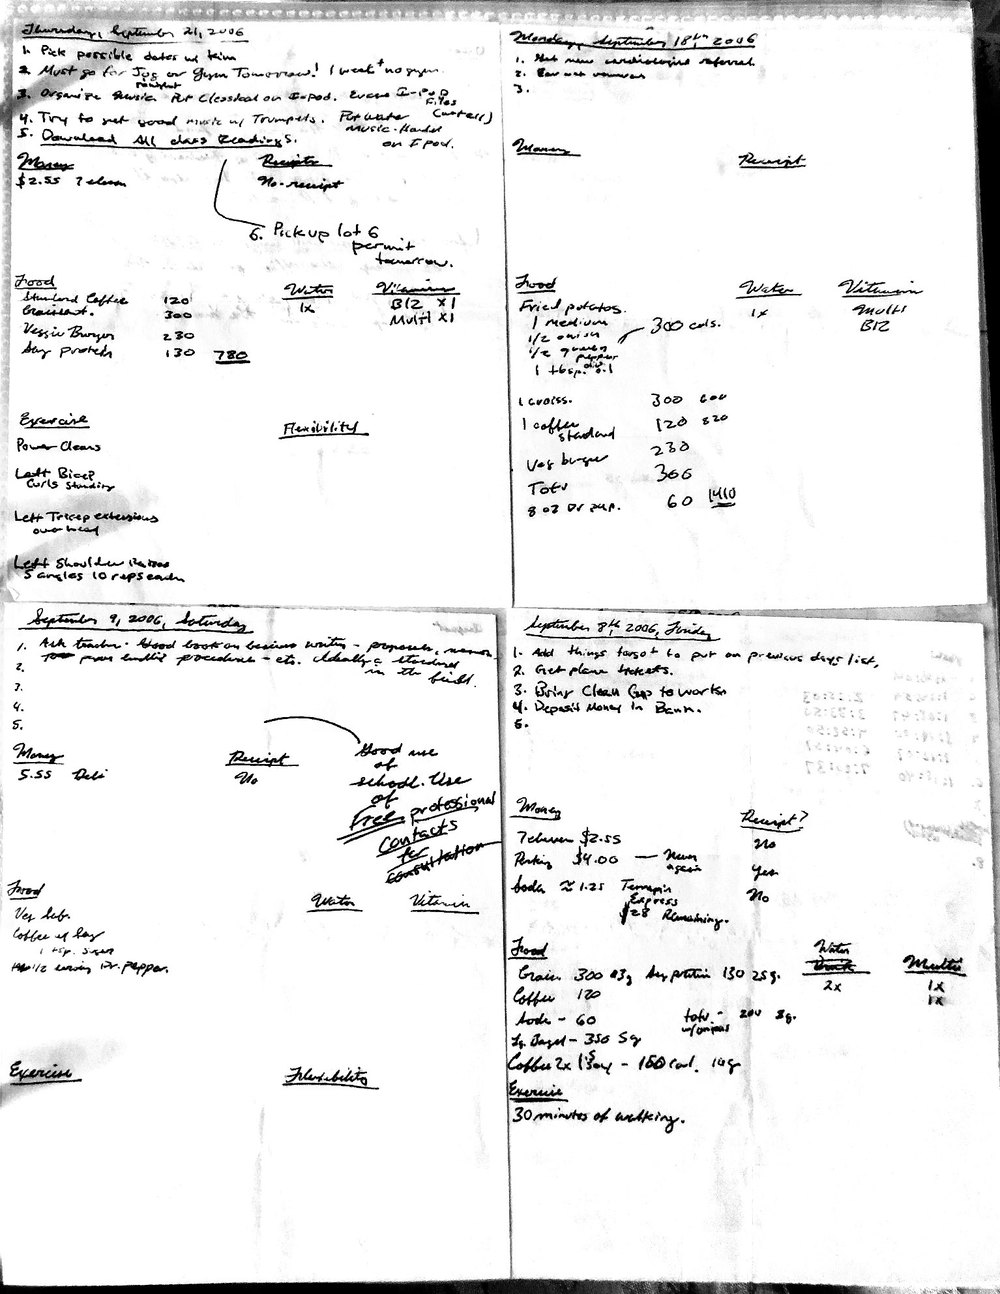 Thursday, September 21, 2006
1. Pick possible dates w/ Kim
2. Must go for Jog or Gym Tomorrow! 1 week + no gym.
3. Organize Music Put Classical on I-Pod. I-Pod
Files
4. Try to get good music w/ Trumpets. Put water
music-Handel
on I pod.
5. Download All class Readings.
Money
Receipts
$2.55 7 eleven
No-receipt
6. Pick up lot 6
permit
tomorrow.
Food
Water
Vitamins
Standard Coffee 120
1x
B12 x1
Croissant. 300
Multi x1
Veggie Burger 230
Soy protein 130 780
Exercise
Flexibility
Power Cleans
Left Bicep
Curls Standing
Left Tricep extensions
overhead
Left Shoulder Raises
5 angles 10 reps each
Monday, September 18th, 2006
1. Get new cardiologist referral.
2.
3.
Money
Receipt
Food
Water
Vitamin
Fried potatos.
1x
Multi
1 medium
B12
1/2 onion
300 cals.
1/2 green
pepper
1 tbsp. oil
1 croiss. 300 600
1 coffee 120 820
standard
Veg burger 230
Tofu 300
8 oz Dr pep. 60 1410
September 9, 2006, Saturday
1. Ask teacher. Good book on business writing - proposals, memos
procedures - etc. Ideally a standard
in the field.
2.
3.
4.
5.
Money
Receipt
5.55 Deli
No
Good use
of
school. Use
of
Free professional
contacts
for
consultation
Food
Water
Vitamin
Veg
Coffee w/ Soy
1 tsp. sugar
serving Dr. pepper.
Exercise
Flexibility
September 8th, 2006, Friday
1. Add things forgot to put on previous days list,
2. Get plane tickets.
3. Bring Clean Cup to work
4. Deposit Money in Bank.
5.
Money
Receipt?
7 eleven $2.55
No
Parking $4.00 — Never
again
Yes
Soda ≈ 1.25 Terrapin
Express
$28 Remaining.
No
Food
Water
Multi
Croiss. 300 Soy protein 130 25g.
2x
1x
Coffee 120
1x
Soda - 60
tofu - 200 8g.
w/onions
Lg. Bagel - 350 5g
Coffee 2x
Exercise
30 minutes of walking.